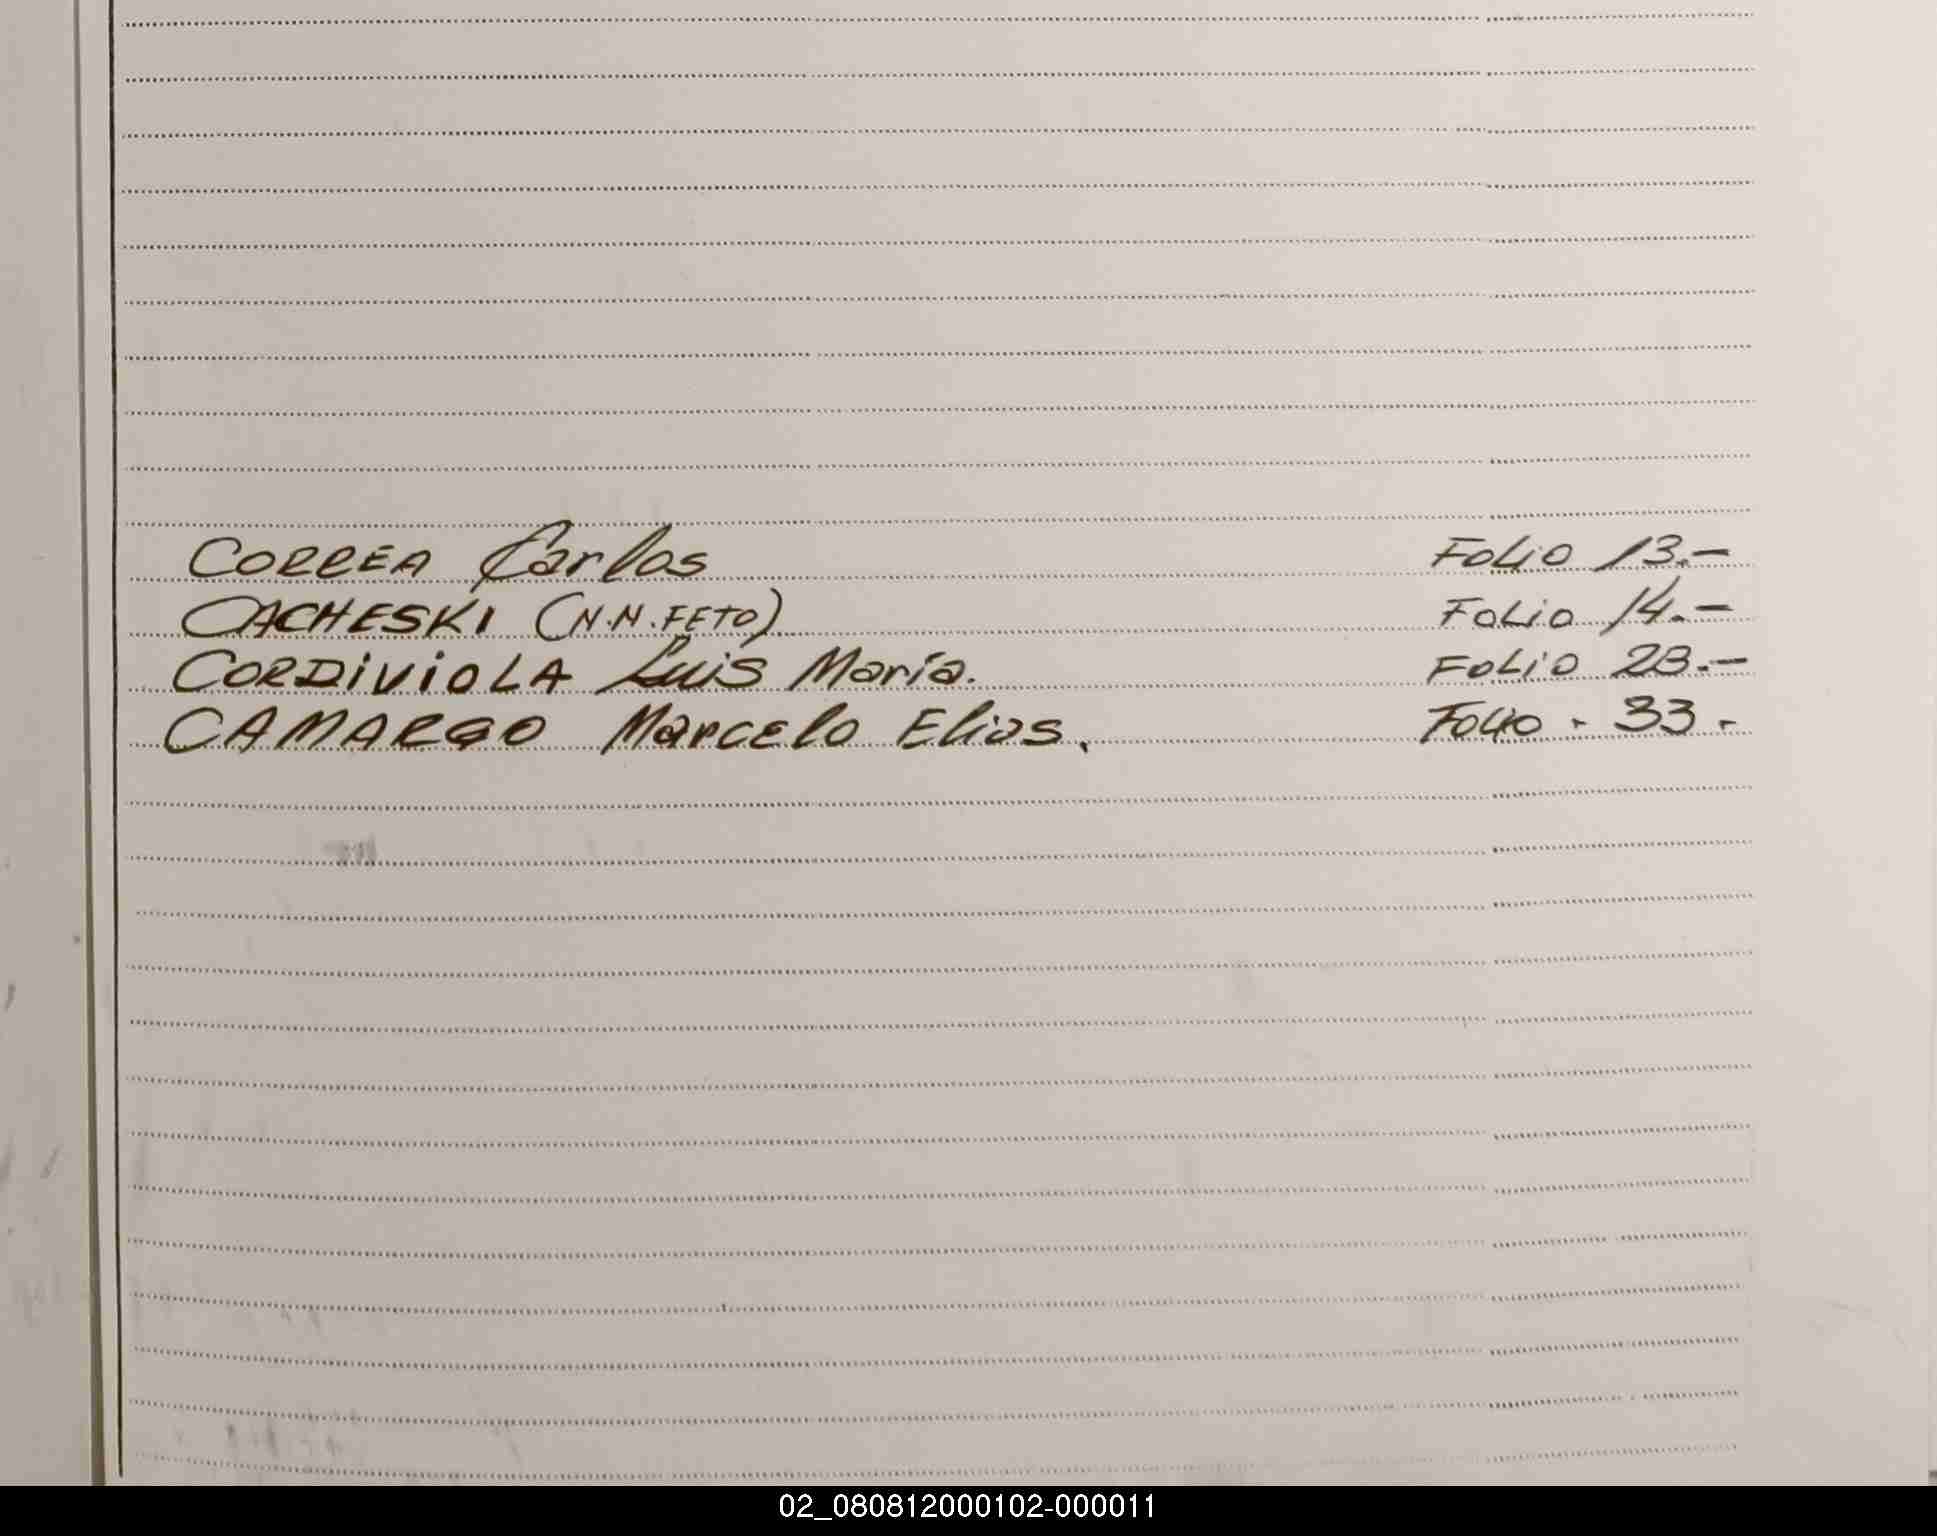 CORREA Carlos Folio 13.-
CACHESKI (N.N. FETO) Folio 14.-
CORDIVIOLA Luis María. Folio 23.-
CAMARGO Marcelo Elias. Folio - 33 -
02_080812000102-000011